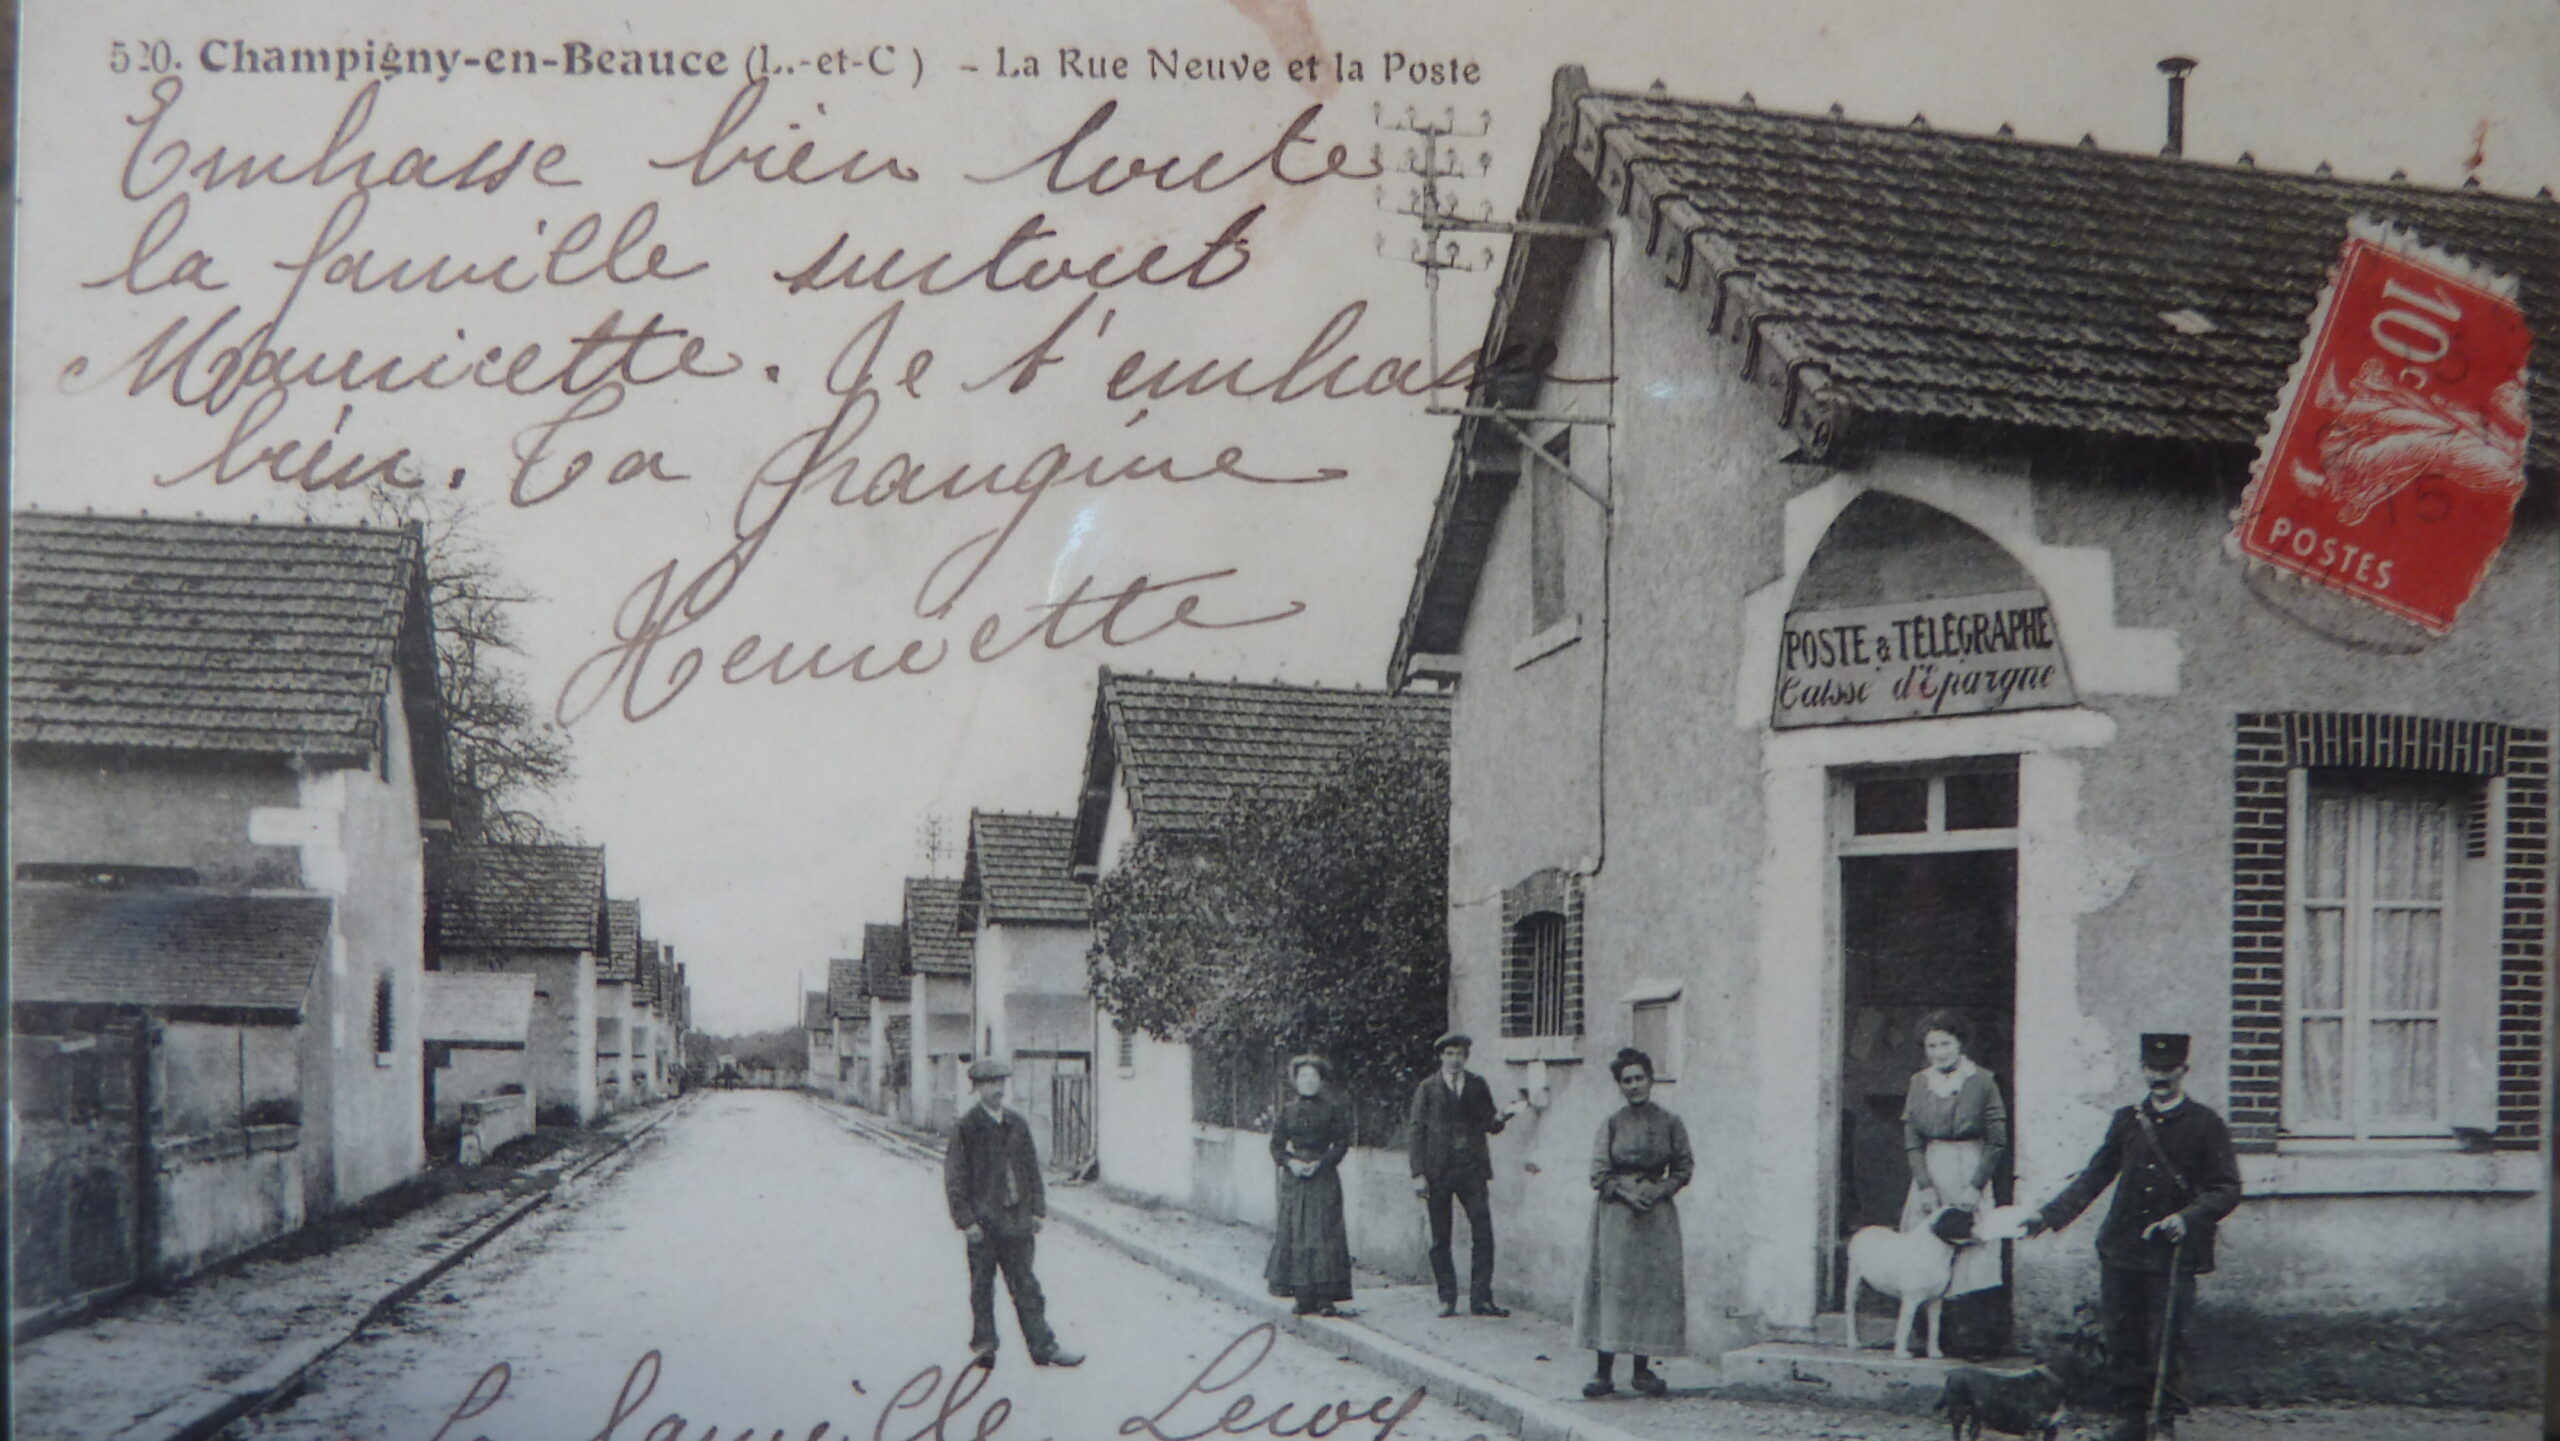 520. Champigny-en-Beauce (L.-et-C) - La Rue Neuve et la Poste
Embrasse bien toute
la famille surtout
Mauricette. Je t'embrasse
bien. Ta frangine
Henriette
10c
POSTES
POSTE & TÉLÉGRAPHE
Caisse d'Epargne
La famille Leroy